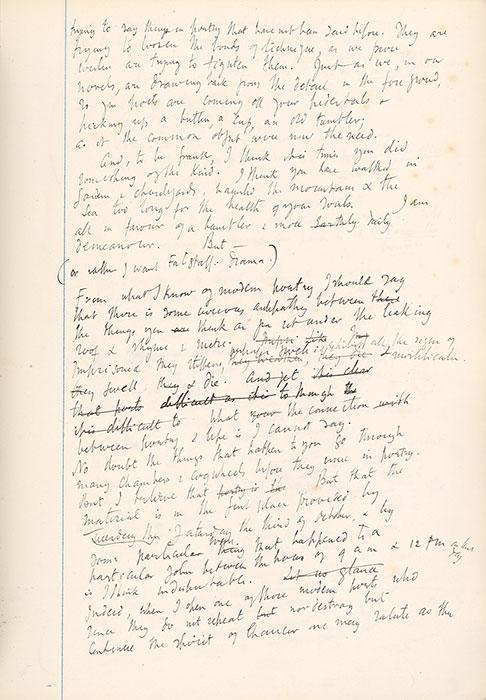 trying to say things in poetry that have not been said before. They are
trying to loosen the bonds of technique, as we prose
writers are trying to tighten them. Just as we, in our
novels, are drawing back from the detail in the foreground,
so you poets are coming off your pedestals &
picking up a button, a cup, an old tumbler;
as if the common object were now the need.
And, to be frank, I think it is time you did
something of the kind. I think you have walked in
gardens & churchyards, haunted the mountain & the
sea too long for the health of your souls. I am
all in favour of a humbler & more earthly daily
demeanour. But
(or rather I want Falstaff. Drama.)
From what I know of modern poetry I should say
that there is some curious antipathy between these
the things you are think as you sit under the leaking
roof & rhyme & metre.
Imprisoned they stiffen, all the signs of
they swell they & die. And yet it is clear & mortification.
that poets difficult as it is to though the
it is difficult to what your the connection with
between poetry & life is I cannot say.
No doubt the things that happen to you go through
many chambers & cogwheels before they emerge in poetry.
But I believe that poetry is the But that the
material is in the first place provided by
Saturday the third of October, & by
some particular thing that happened to a
particular John between the hours of 9 am & 12 pm
is I think indisputable. Let us glance
Indeed, when I open one of those modern poets who
since they do not repeat but nor destroy but
continue the spirit of Chaucer one may salute as the